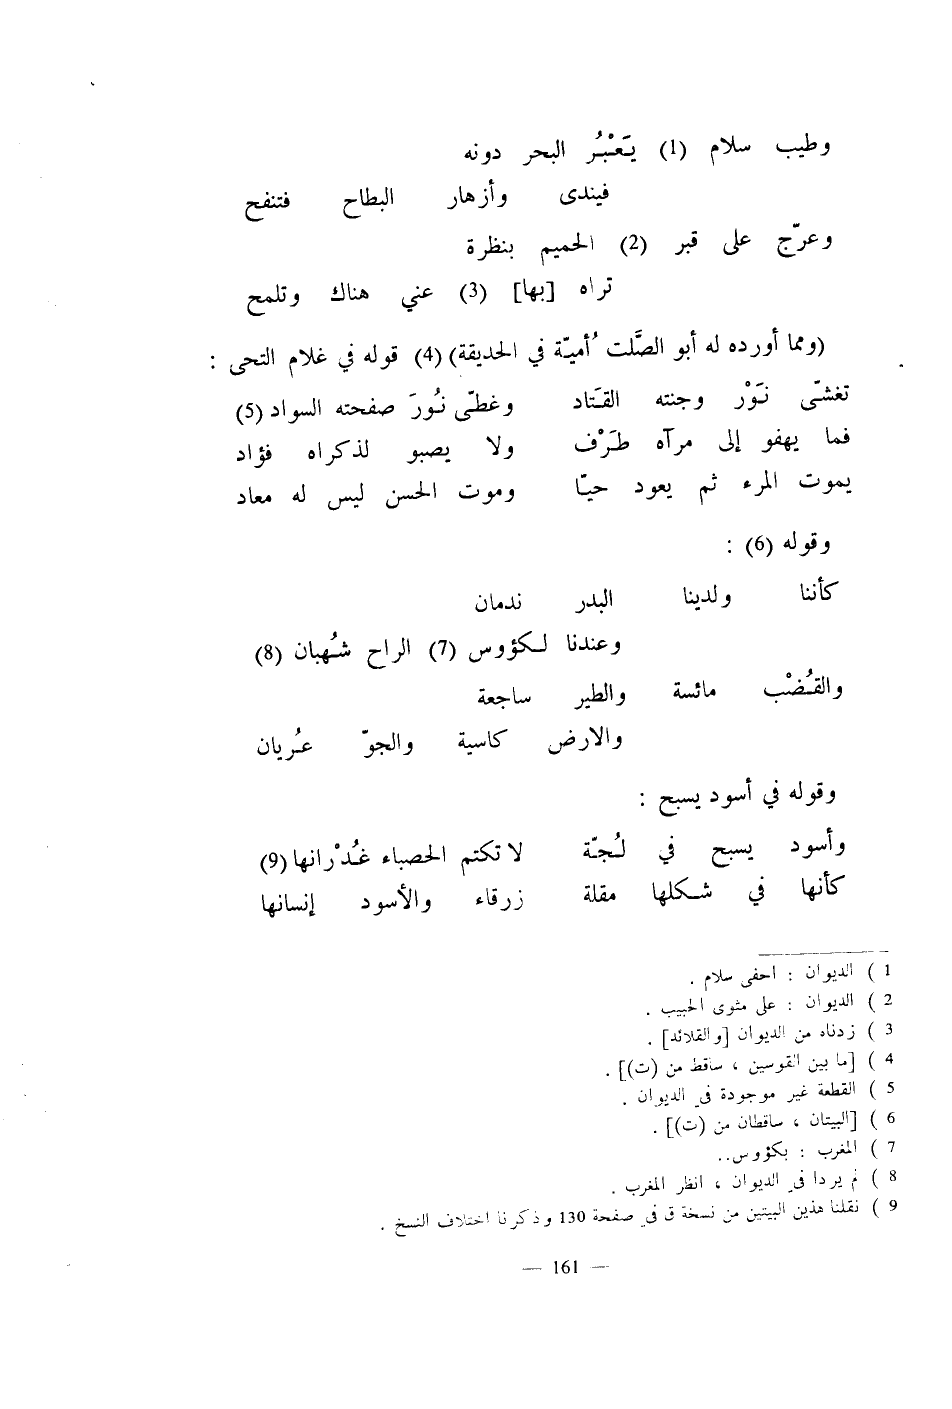 وطيب سلام (1) يَعْبُر البحر دونه
فيندى وأزهار البطاح فتنفح
وعرّج على قبر (2) الحميم بنظرة
تراه [بها] (3) عني هناك وتلمح
(ومما أورده له أبو الصَّلت أُميّة في الحديقة) (4) قوله في غلام التحى :
تغشّى نَوْر وجنته القَتاد وغطّى نُورَ صفحته السواد (5)
فما يهفو إلى مرآه طَرْف ولا يصبو لذكراه فؤاد
يموت المرء ثم يعود حيّا وموت الحسن ليس له معاد
وقوله (6) :
كأننا ولدينا البدر ندمان
وعندنا لكؤوس (7) الراح شُهبان (8)
والقُضْب مائسة والطير ساجعة
والارض كاسية والجوّ عُريان
وقوله في أسود يسبح :
وأسود يسبح في لُجّة لا تكتم الحصباء غُدْرانها (9)
كأنها في شكلها مقلة زرقاء والأسود إنسانها
1 ) الديوان : احفى سلام .
2 ) الديوان : على مثوى الحبيب .
3 ) زدناه من الديوان [والقلائد] .
4 ) [ما بين القوسين ، ساقط من (ت)] .
5 ) القطعة غير موجودة في الديوان .
6 ) [البيتان ، ساقطان من (ت)] .
7 ) المغرب : بكؤوس..
8 ) لم يردا في الديوان ، انظر المغرب .
9 ) نقلنا هذين البيتين من نسخة ق في صفحة 130 وذكرنا اختلاف النسخ .
— 161 —